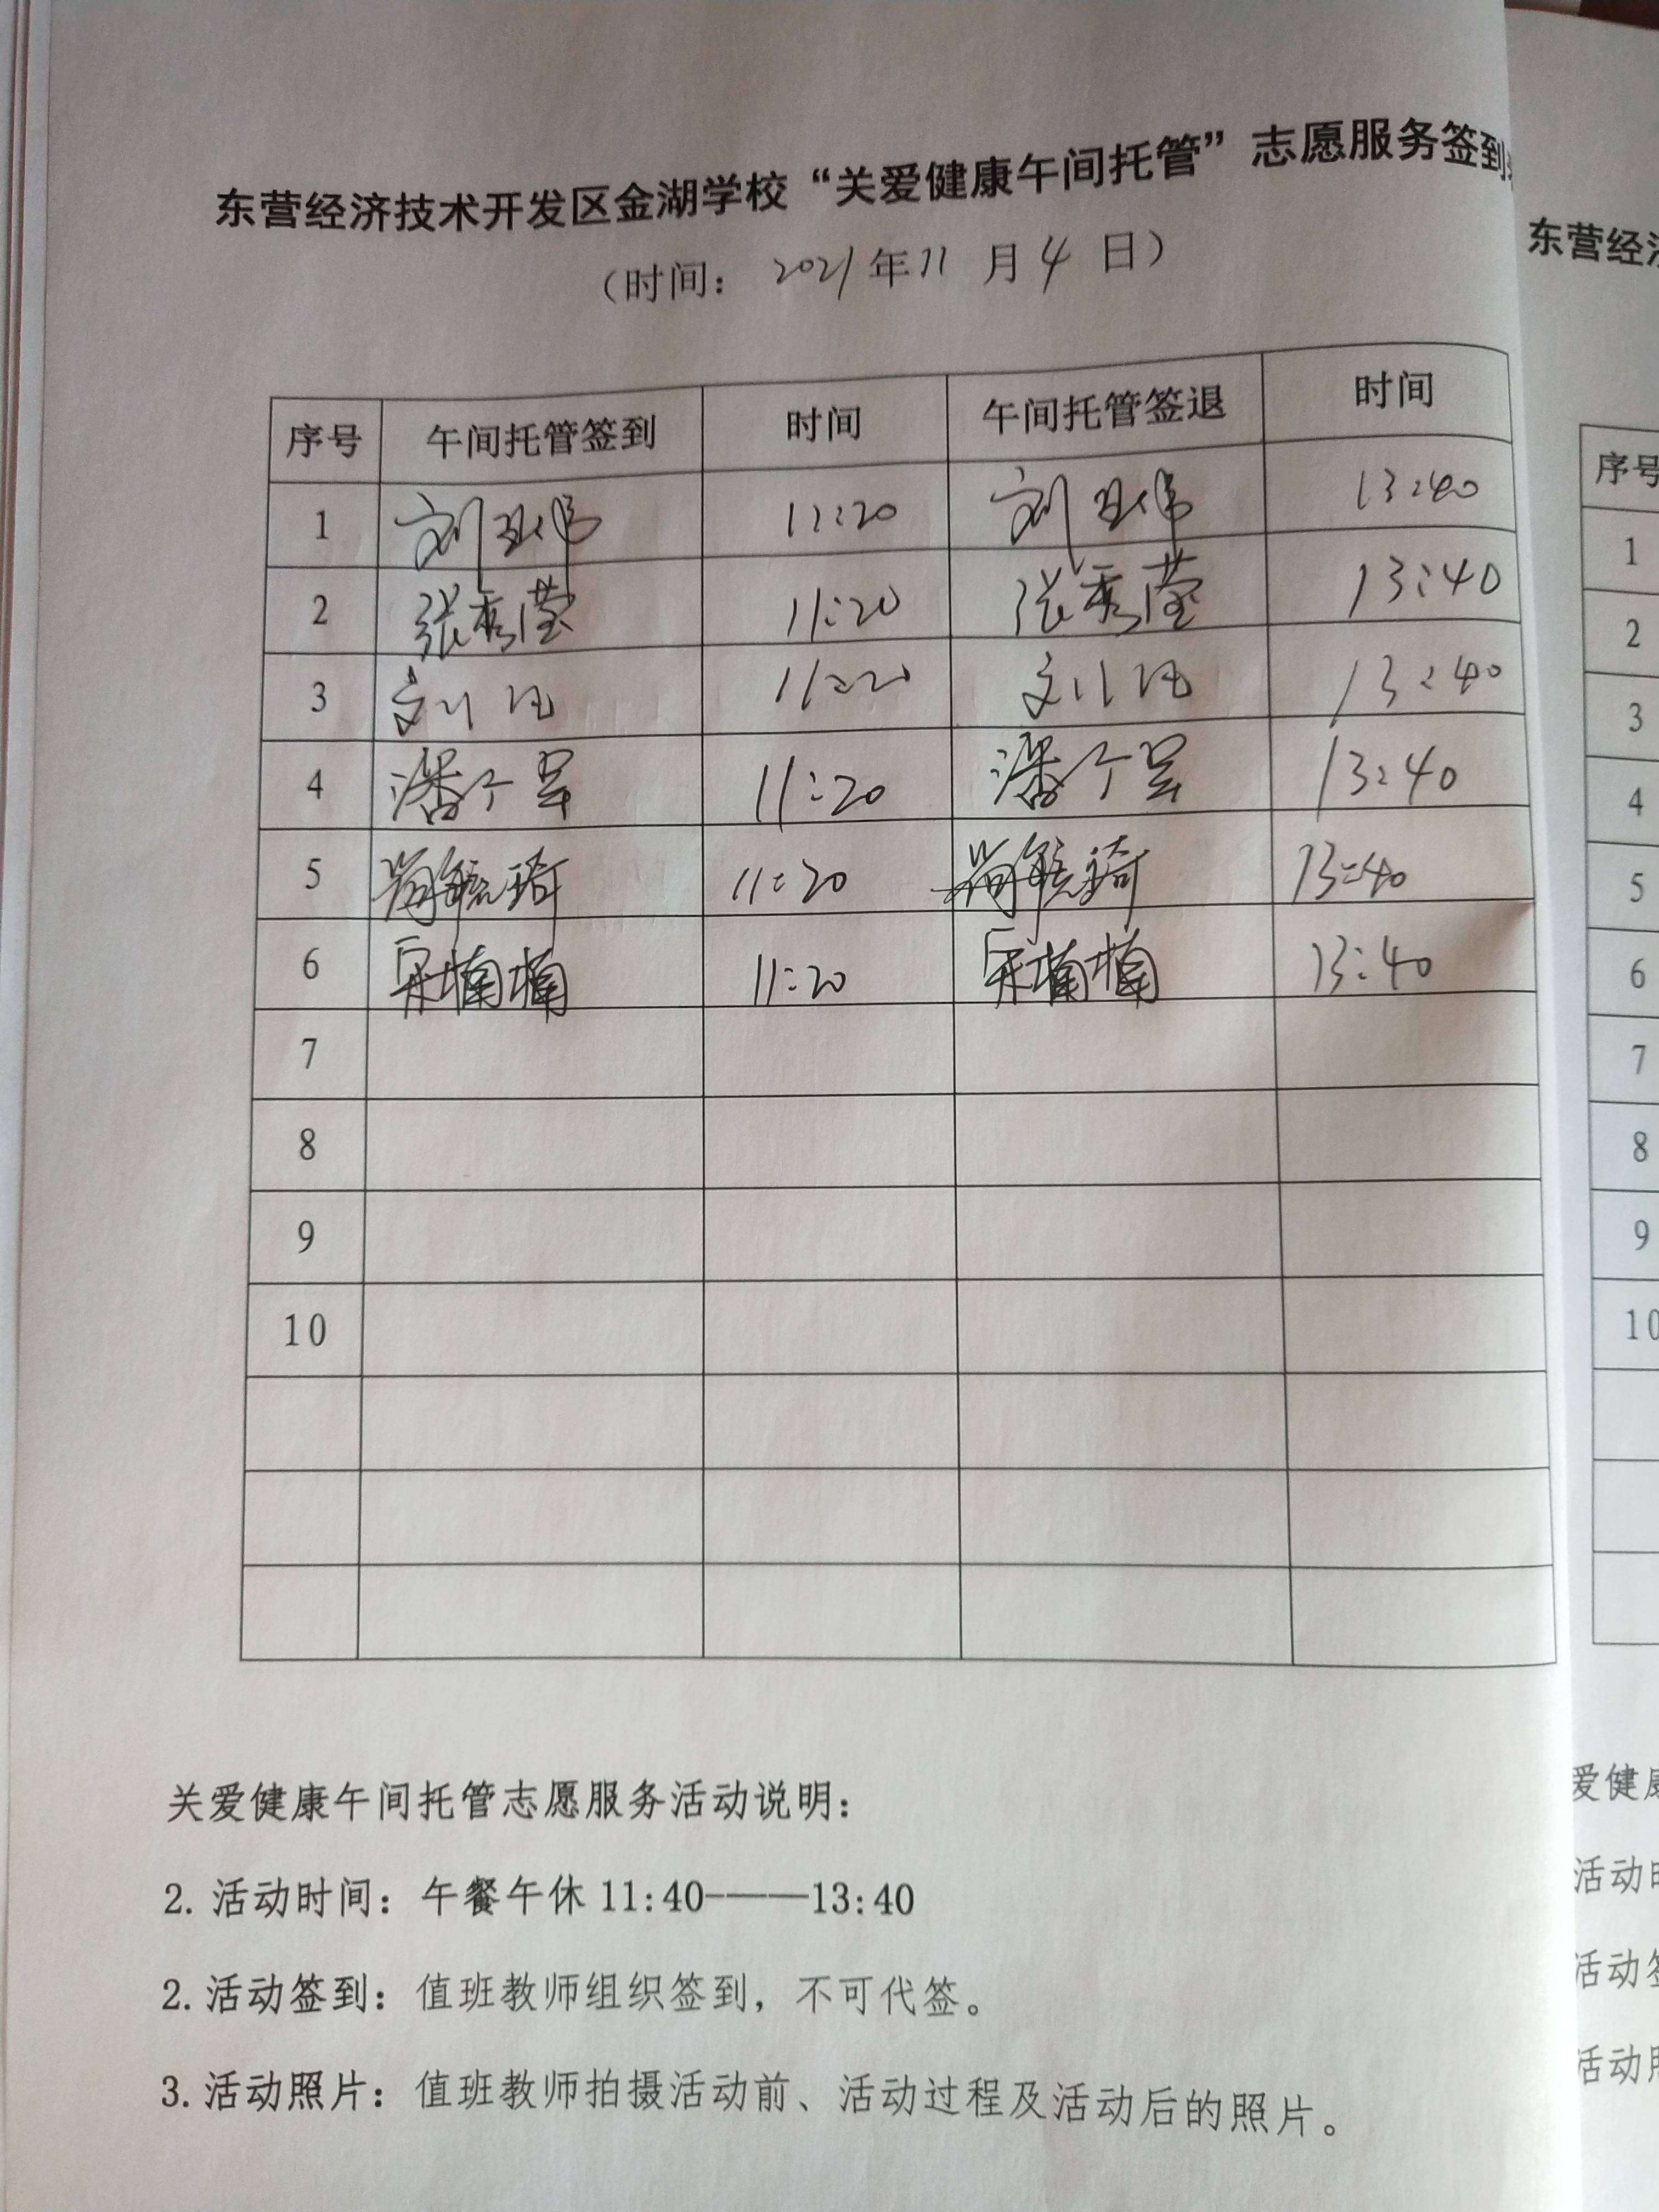 东营经济技术开发区金湖学校“关爱健康午间托管”志愿服务签到
（时间： 2021年11月4日）
序号 午间托管签到 时间 午间托管签退 时间
1 刘 11:20 刘 13:40
2 张秀莹 11:20 张秀莹 13:40
3 刘 11:20 刘 13:40
4 潘 11:20 潘 13:40
5 尚毓琦 11:20 尚毓琦 13:40
6 宋楠楠 11:20 宋楠楠 13:40
7
8
9
10
关爱健康午间托管志愿服务活动说明：
2. 活动时间：午餐午休 11:40———13:40
2. 活动签到：值班教师组织签到，不可代签。
3. 活动照片：值班教师拍摄活动前、活动过程及活动后的照片。
东营经
序号
1
2
3
4
5
6
7
8
9
10
爱健
活动
活动
活动